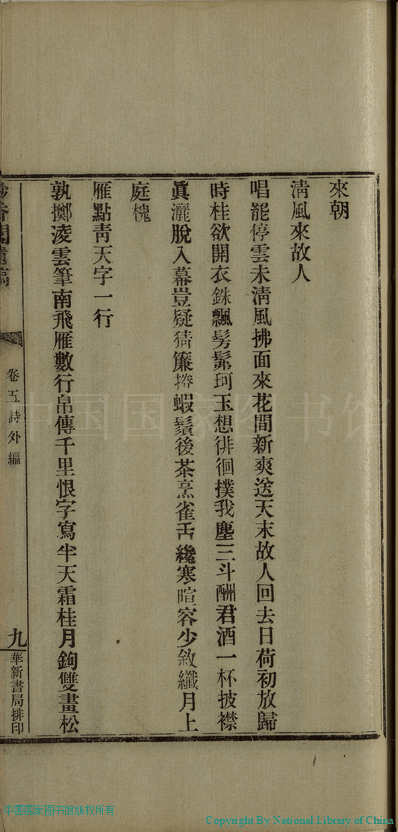 來朝
淸風來故人
唱罷停雲未淸風拂面來花間新爽送天末故人回去日荷初放歸
時桂欲開衣銖飄髣髴珂玉想徘徊撲我塵三斗酬君酒一杯披襟
眞灑脫入幕豈疑猜簾捲蝦鬚後茶烹雀舌纔寒暄容少敘纖月上
庭槐
雁點靑天字一行
孰擲凌雲筆南飛雁數行帛傳千里恨字寫半天霜桂月鉤雙畫松
香閣遺稿
卷五詩外編
九
華新書局排印
中国国家图书
中国国家图书馆版权所有
Copyright By National Library of China